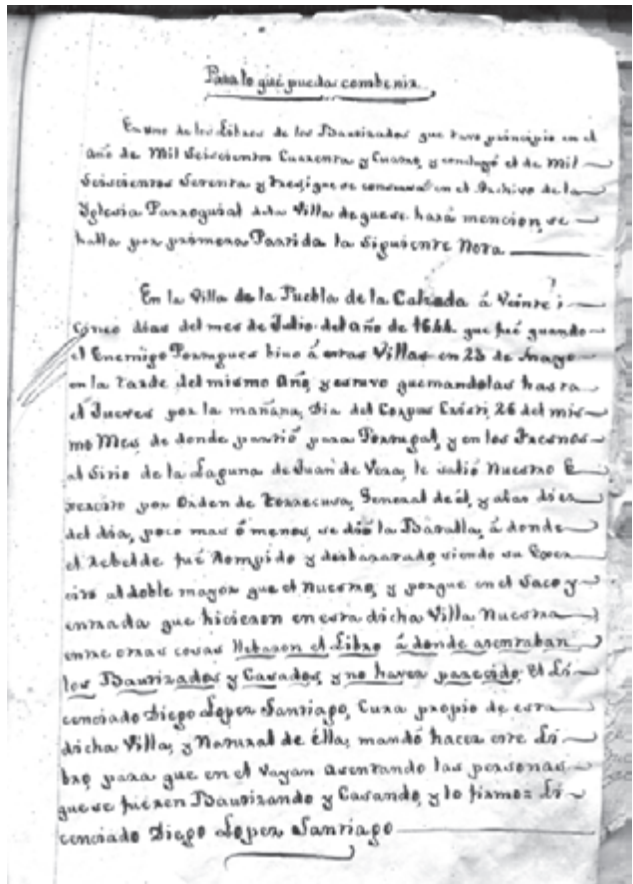 Para lo qué pueda combenir.
En uno de los Libros de los Bautizados que tuvo principio en el
año de Mil Seiscientos Cuarenta y Cuatro, y concluyó el de Mil
Seiscientos Setenta y tres, que se conserva en el Archivo de la
Iglesia Parroquial de la Villa de que se hará mencion, se
halla por primera Partida la Siguiente Nota
En la Villa de la Puebla de la Calzada á Veinte i
cinco dias del mes de Julio del año de 1644 que fué quando
el Enemigo Portugues bino á estas Villas en 25 de Mayo
en la tarde del mismo Año, y estuvo quemandolas hasta
el Jueves por la mañana, Dia del Corpus Cristi, 26 del mis-
mo Mes de donde partió para Portugal, y en los Fresnos
al Sitio de la Laguna de Juan de Vera, le salió Nuestro E
xercito por Orden de Torrecusa, General de él, y alas diez
del dia, poco mas ó menos, se dió la Batalla, á donde
el Rebelde fué Rompido y desbaratado, siendo su Exer
cito al doble mayor que el Nuestro, y porque en el Saco y
entrada que hicieron en esta dicha Villa Nuestra
entre otras cosas llebaron el Libro á donde asentaban
los Bautizados y Casados, y no haver parecido, El Li-
cenciado Diego Lopez Santiago, Cura propio de esta
dicha Villa, y Natural de élla, mandó hacer este Li-
bro para que en el vayan asentando las personas
que se fueren Bautizando y Casando, y lo firmo= Li-
cenciado Diego Lopez Santiago